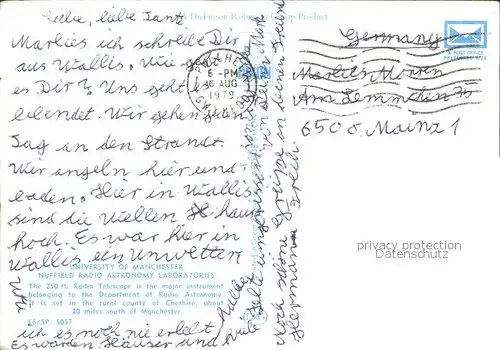 A Dickinson Robinson Group Product
Liebe, liebe Tante
Marlies ich schreibe Dir
aus Wallis. Wie geht es
es Dir? Uns geht es
blendet. Wir gehen jeden
Tag an den Strand.
Wir angeln hier und
baden. Hier in Wallis
sind die Wellen haus
hoch. Es war hier in
Wallis ein Unwetter
UNIVERSITY OF MANCHESTER
NUFFIELD RADIO ASTRONOMY LABORATORIES
The 250 ft. Radio Telescope is the major instrument
belonging to the Department of Radio Astronomy
it is set in the rural county of Cheshire, about
20 miles south of Manchester.
E6/SP. 5057
ich es noch nie erlebt
Es wurden Häuser und viele
Zelte
von Deiner
Noch schöne Grüße an deinen
Hermann
6 - PM
16 AUG
1979
A POST OFFICE
PREFERRED SIZE
Germany
Marlies Morren
Am Lemmchen 35
6500 Mainz 1
privacy protection
Datenschutz